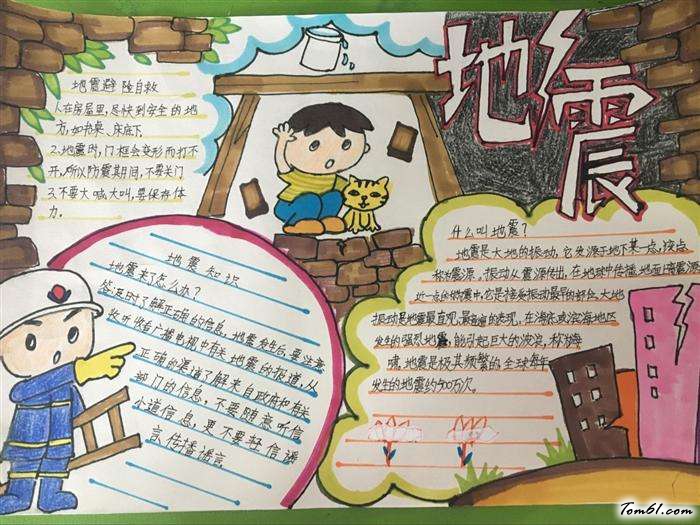 地震
地震避险自救
1.在房屋里,尽快到安全的地
方,如书桌、床底下
2.地震时,门框会变形而打不
开,所以防震其间,不要关门
3.不要大喊大叫,要保存体
力。
什么叫地震?
地震是大地的振动,它发源于地下某一点,该点
称为震源。振动从震源传出,在地球中传播。地面离震源
近一点的
大地
振动是地震最直观、最普遍的表现。在海底或滨海地区
发生的强烈地震,能引起巨大的波浪,称为海
啸。地震是极其频繁的,全球每年
发生的地震约500万次。
地震知识
地震来了怎么办?
答:及时了解正确的信息,地震发生后,要注意
收听收看广播电视中有关地震的报道,从
正确的渠道了解来自政府和有关
部门的信息,不要随意听信
小道信息,更不要轻信谣
言、传播谣言
Tom61.com